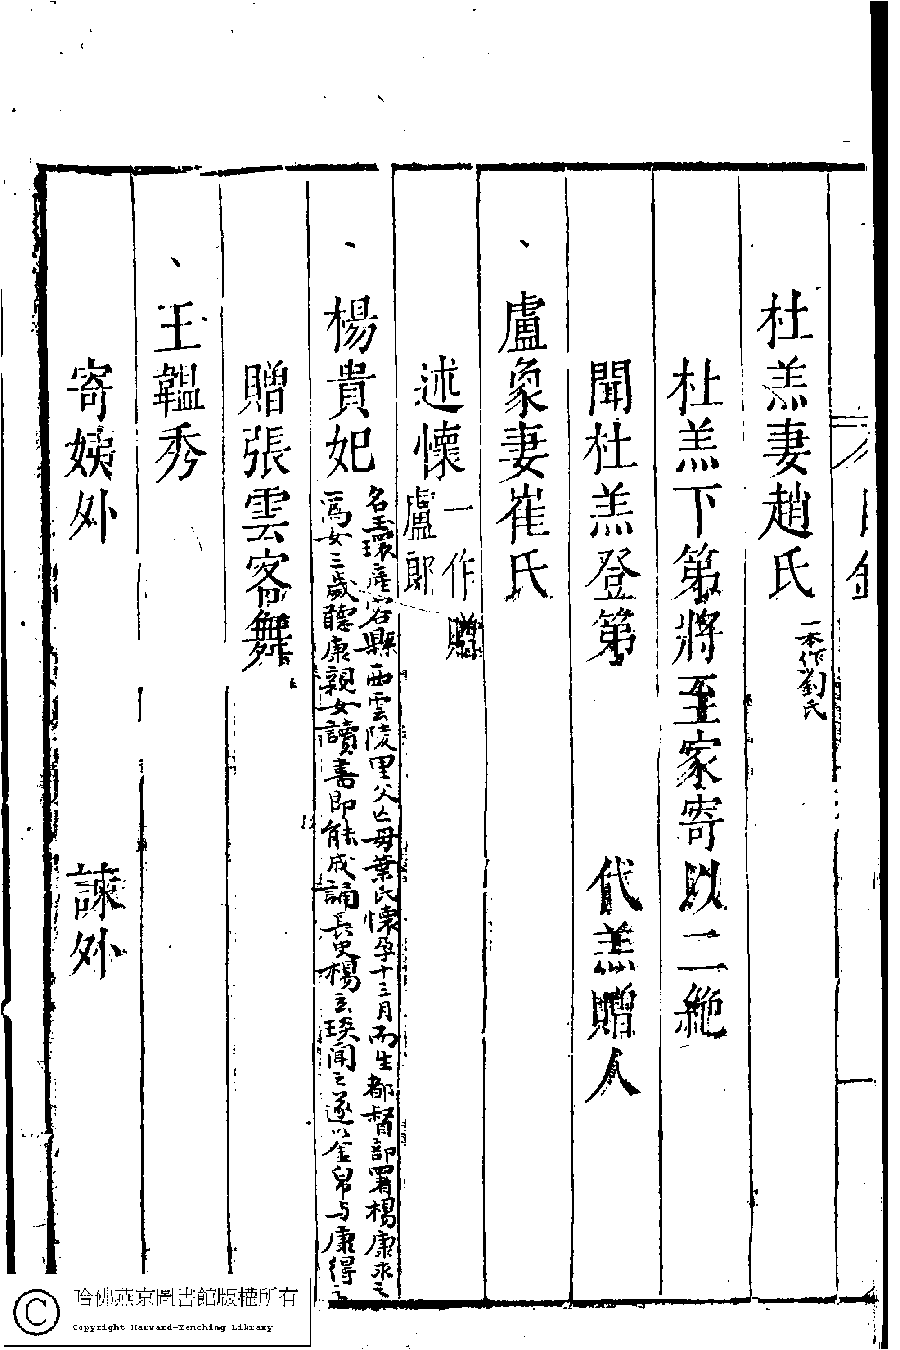 杜羔妻趙氏 一本作劉氏
杜羔下第將至家寄以二絶
聞杜羔登第 代羔贈人
盧象妻崔氏
述懷 一作贈盧郎
楊貴妃 名玉環産容縣西雲陵里父亡母葉氏懷孕十三月而生都督部署楊康求之
爲女三歲聽康親女讀書即能成誦長史楊玄琰聞之遂以金帛与康得之
贈張雲容舞
王韞秀
寄姨外 諫外
哈佛燕京圖書館版權所有
Copyright Harvard-Yenching Library